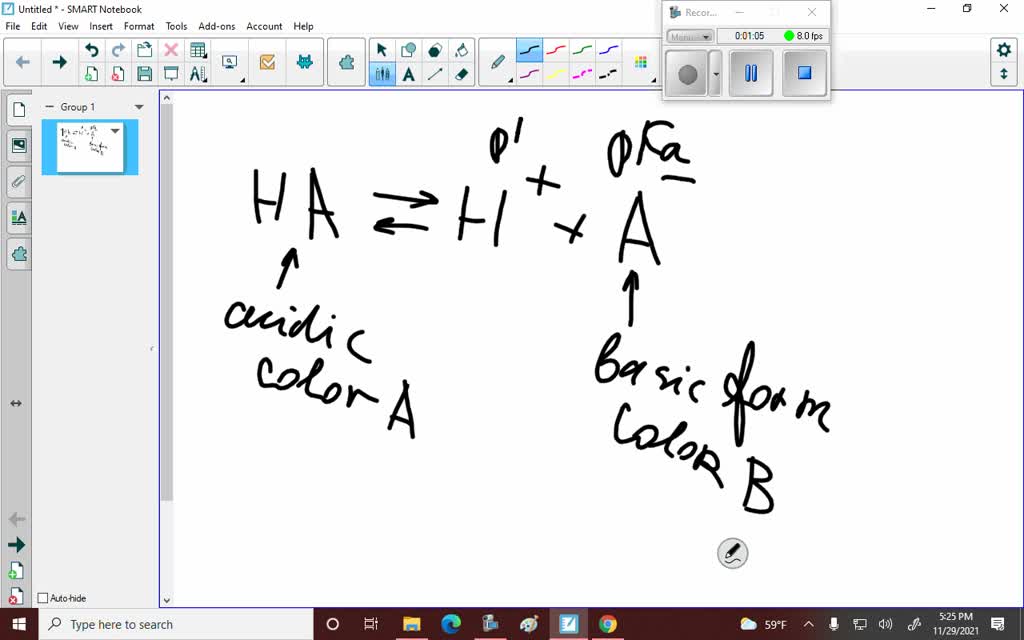 Untitled * - SMART Notebook
File Edit View Insert Format Tools Add-ons Account Help
Recor...
Manual 0:01:05 8.0 fps
Group 1
pKa
HA ⇄ H+ + A
acidic
color A
basic form
color B
Auto-hide
Type here to search
59°F
5:25 PM
11/29/2021